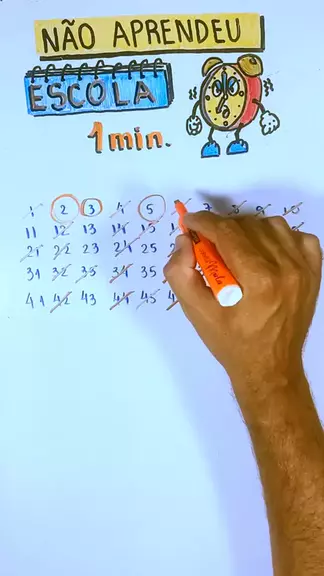 NÃO APRENDEU
ESCOLA
1 min.
1 2 3 4 5 7 8 9 10
11 12 13 14 15
21 22 23 24 25
31 32 33 34 35
41 42 43 44 45